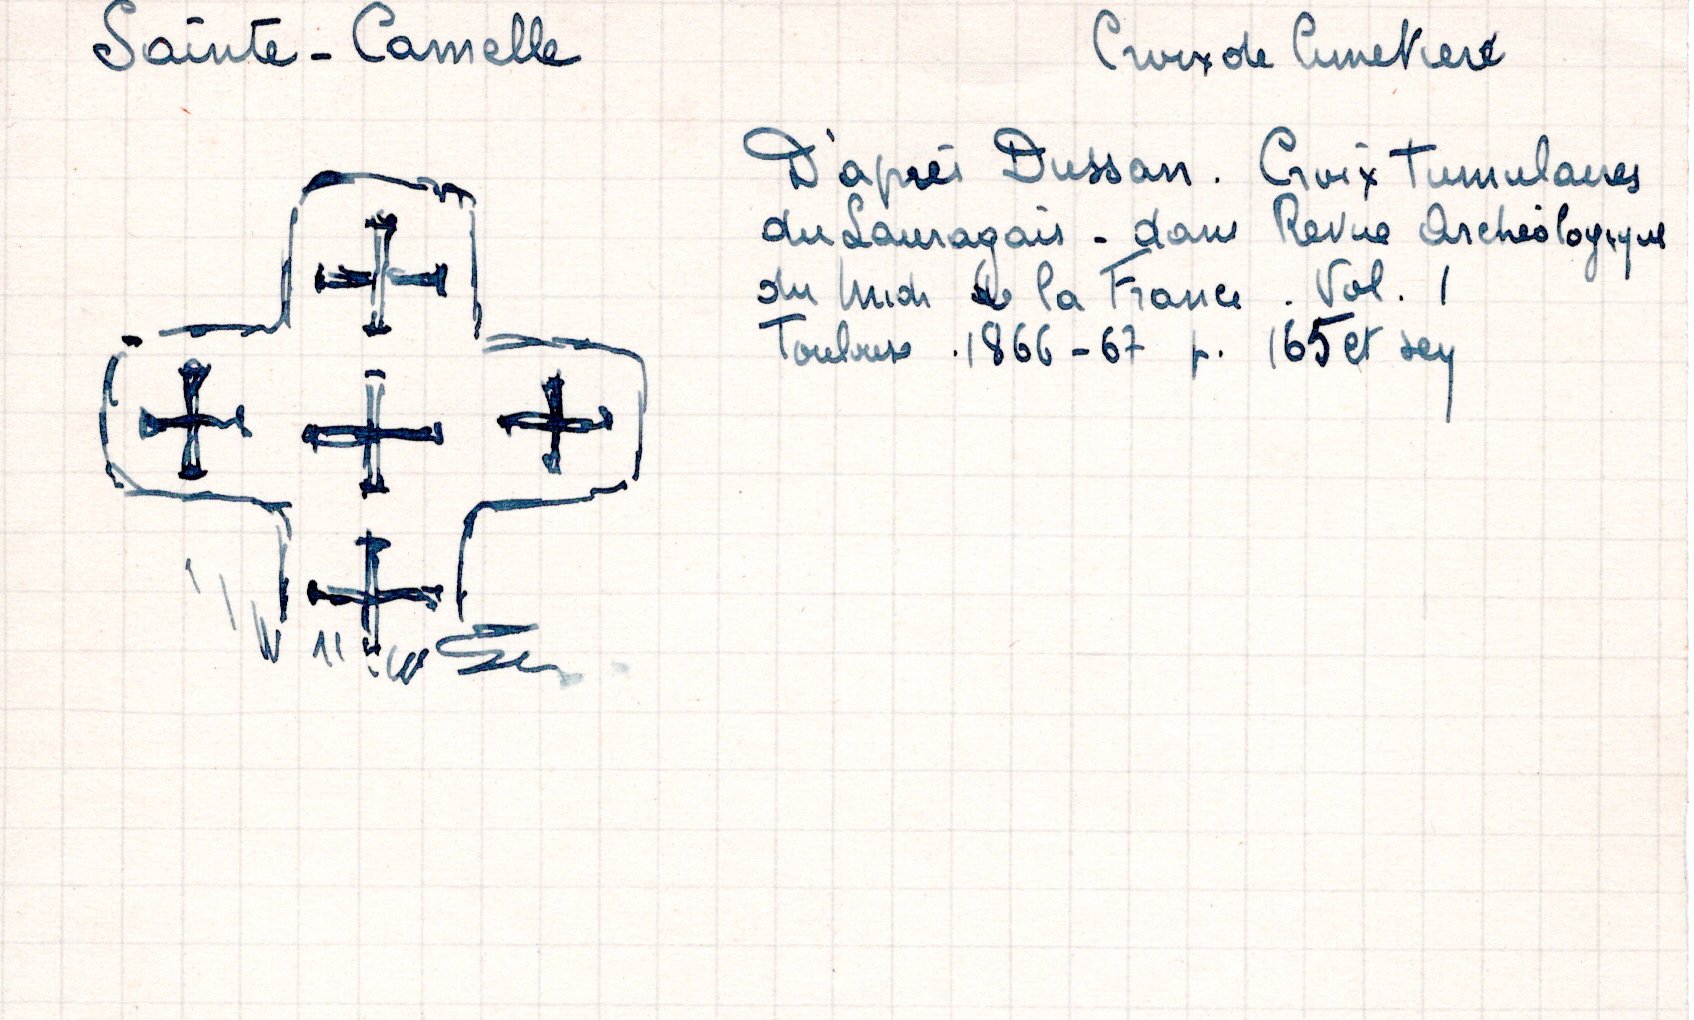 Sainte-Camelle
Croix de Cimetière
D'après Dussan. Croix Tumulaires
du Lauragais - dans Revue Archéologique
du Midi de la France. Vol. 1
Toulouse. 1866-67 p. 165 et seq